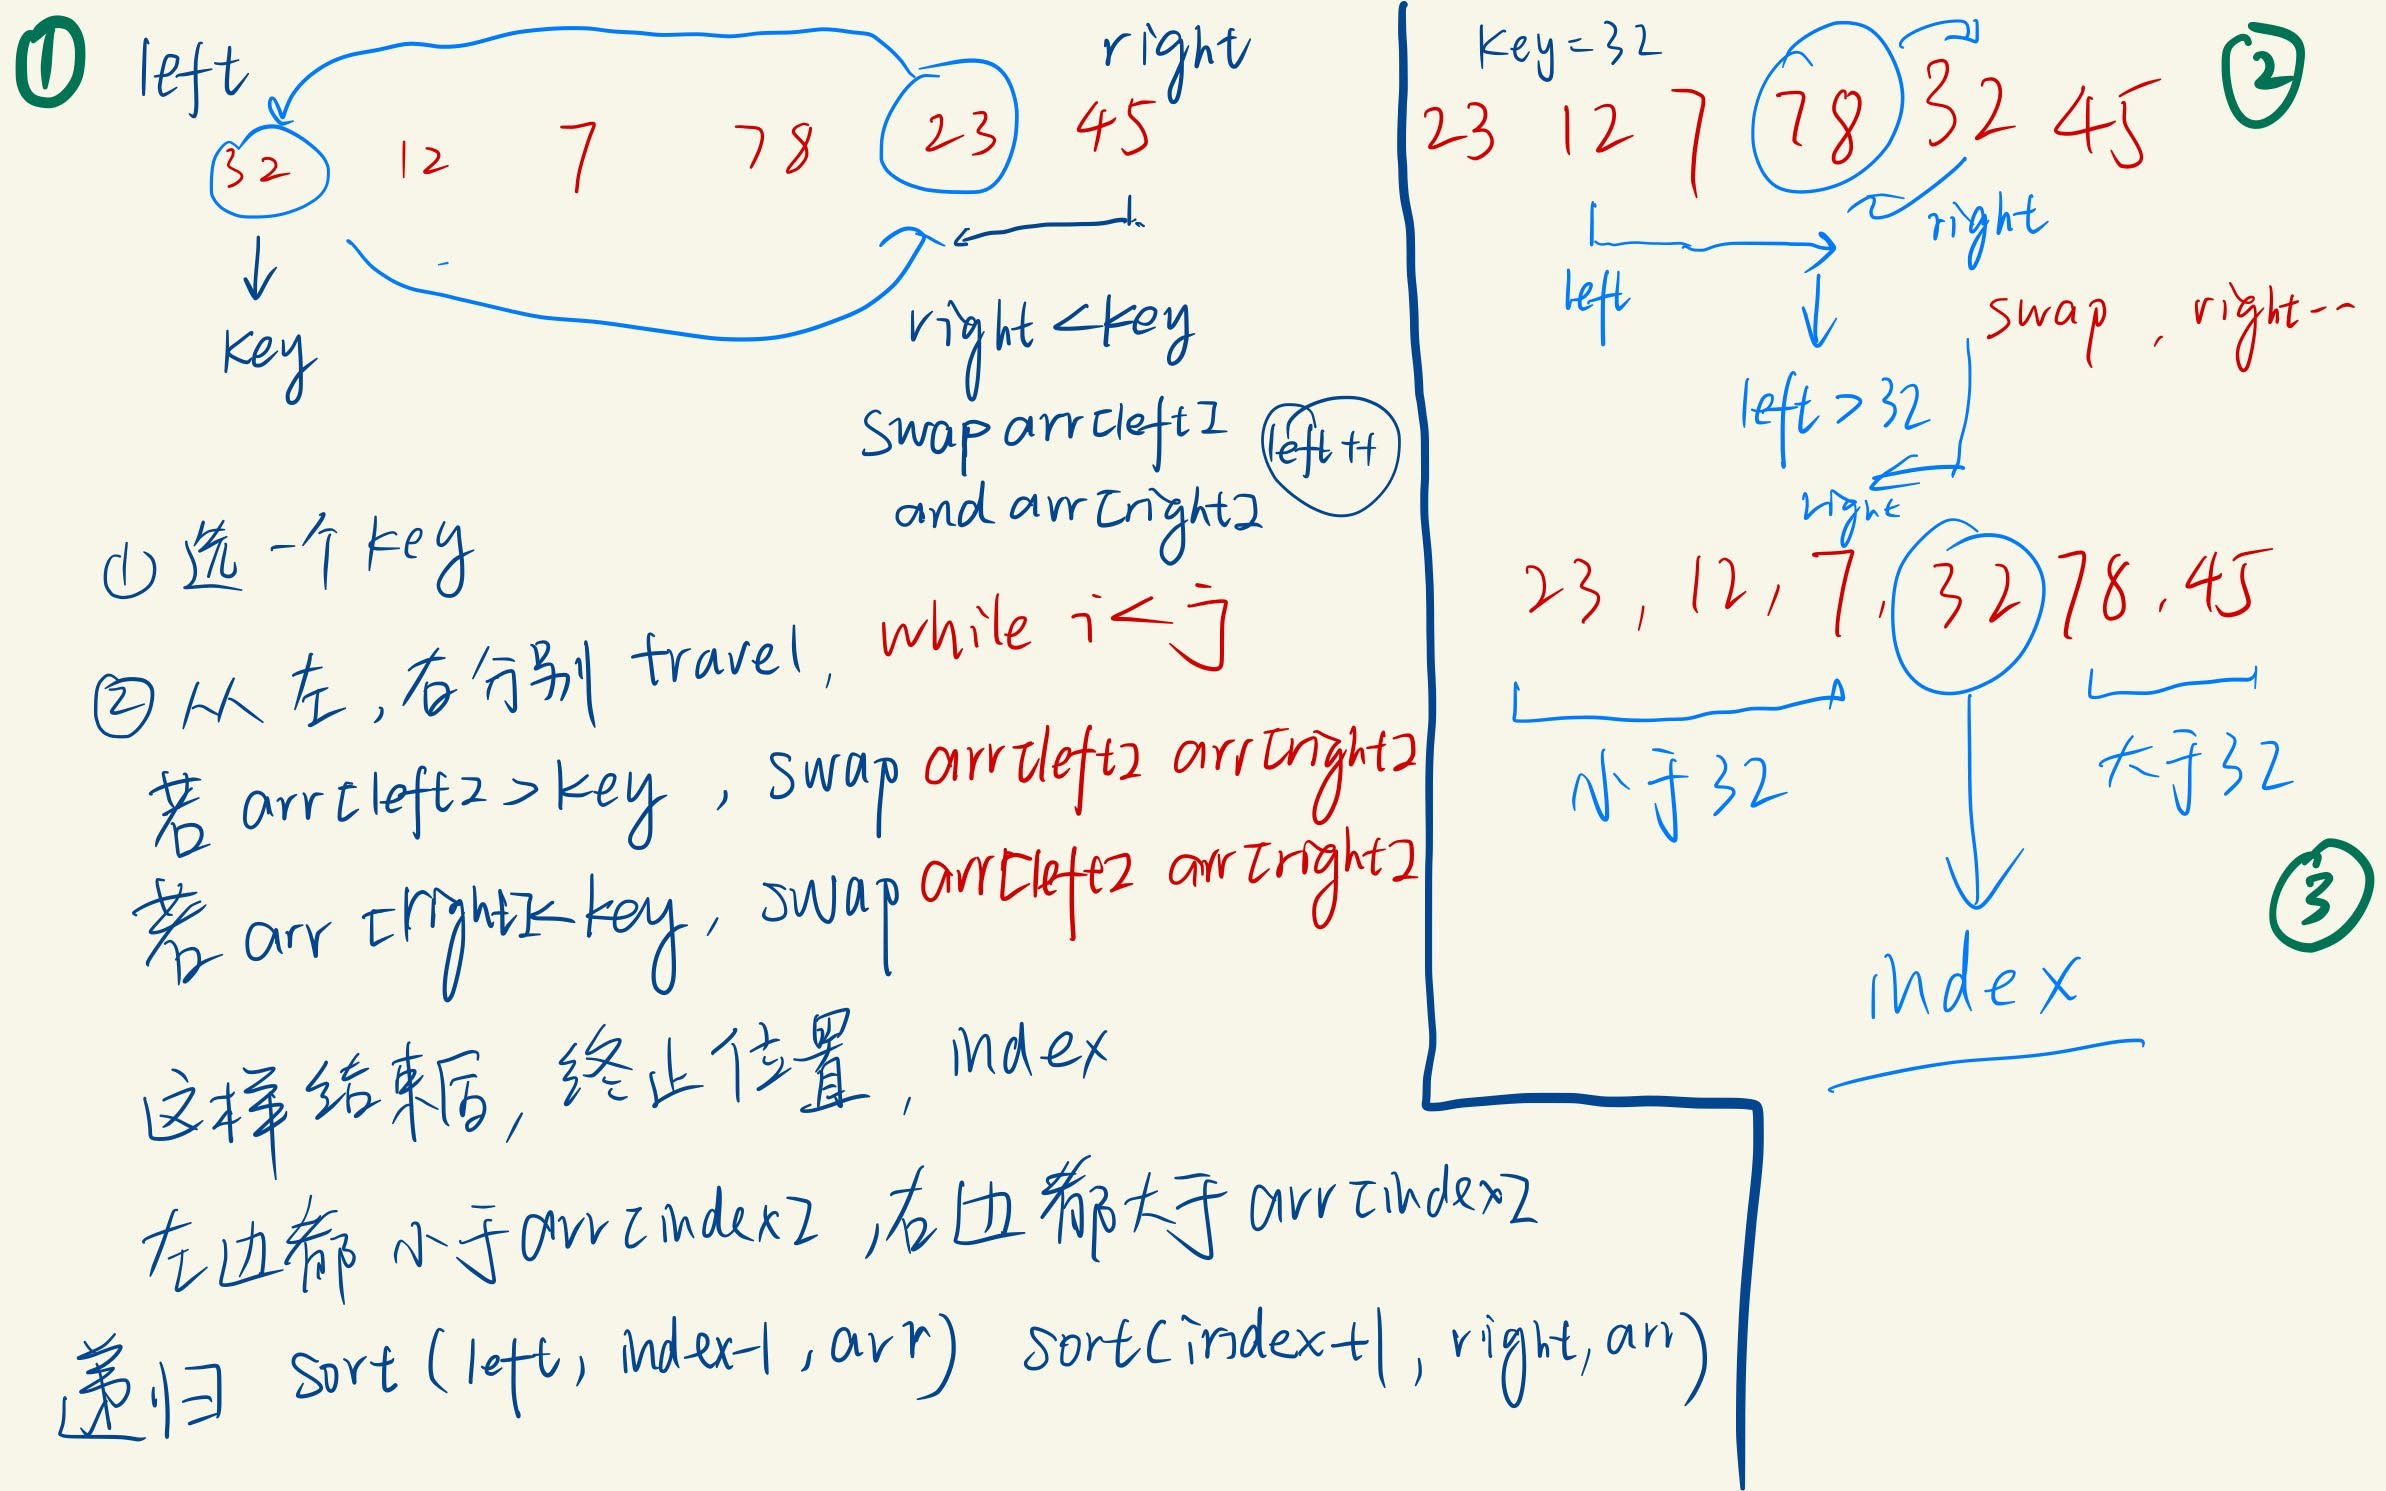 ①
left
right
32 12 7 78 23 45
key
right<key
swap arr[left]
and arr[right]
left++
① 选一个key
② 从左,右分别 travel, while i<j
若 arr[left]>key, swap arr[left] arr[right]
若 arr[right]<key, swap arr[left] arr[right]
这样结束后, 终止位置, index
左边都小于arr[index], 右边都大于arr[index]
递归 sort(left, index-1, arr) sort(index+1, right, arr)
②
key=32
23 12 7 78 32 45
left
right
swap, right--
left>32
right
23, 12, 7, 32 78, 45
小于32
大于32
③
index